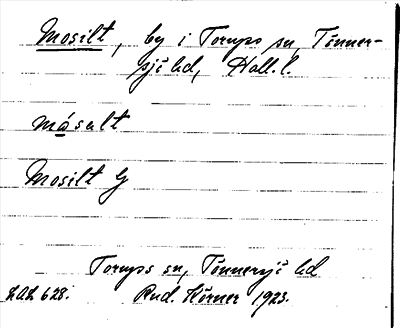 Mosilt, by i Torups sn, Tönner-
sjö hd, Hall. l.
måsalt
Mosilt G
Torups sn, Tönnersjö hd
LAL 628. Rud. Körner 1923.